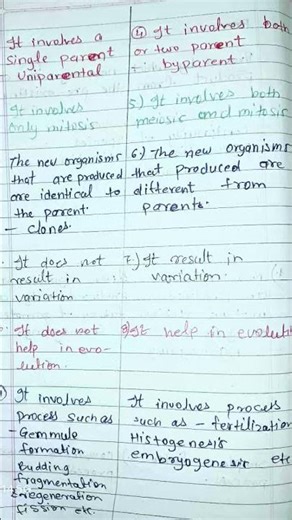 It involves a
single parent
- Uniparental
4) It involves both
or two parent
- byparent.
It involves
only mitosis
5.) It involves both
meiosic and mitosic
The new organisms
that are produced
are identical to
the parent.
- clones.
6.) The new organisms
that produced are
different from
parents.
It does not
result in
variation
7.) It result in
variation.
It does not
help in evo-
lution.
8) It help in
It involves
process such as
- Gemmule
formation
Budding
fragmentation
regeneration
fission etc.
It involves process
such as - fertilization
Histogenesis
embryogenesis etc